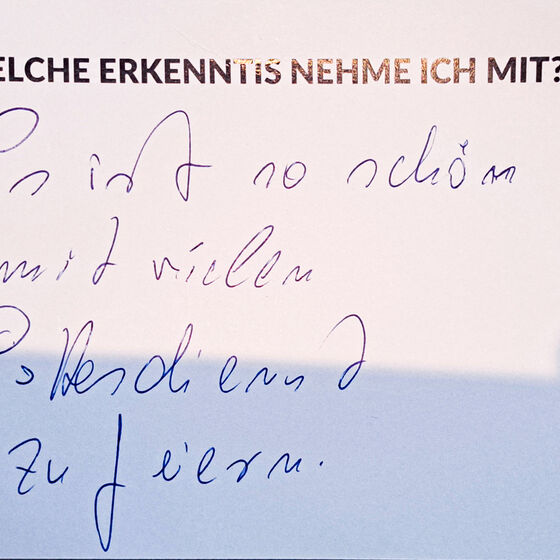 ELCHE ERKENNTIS NEHME ICH MIT?
Es ist so schön
mit vielen
Gottesdienst
zu feiern.